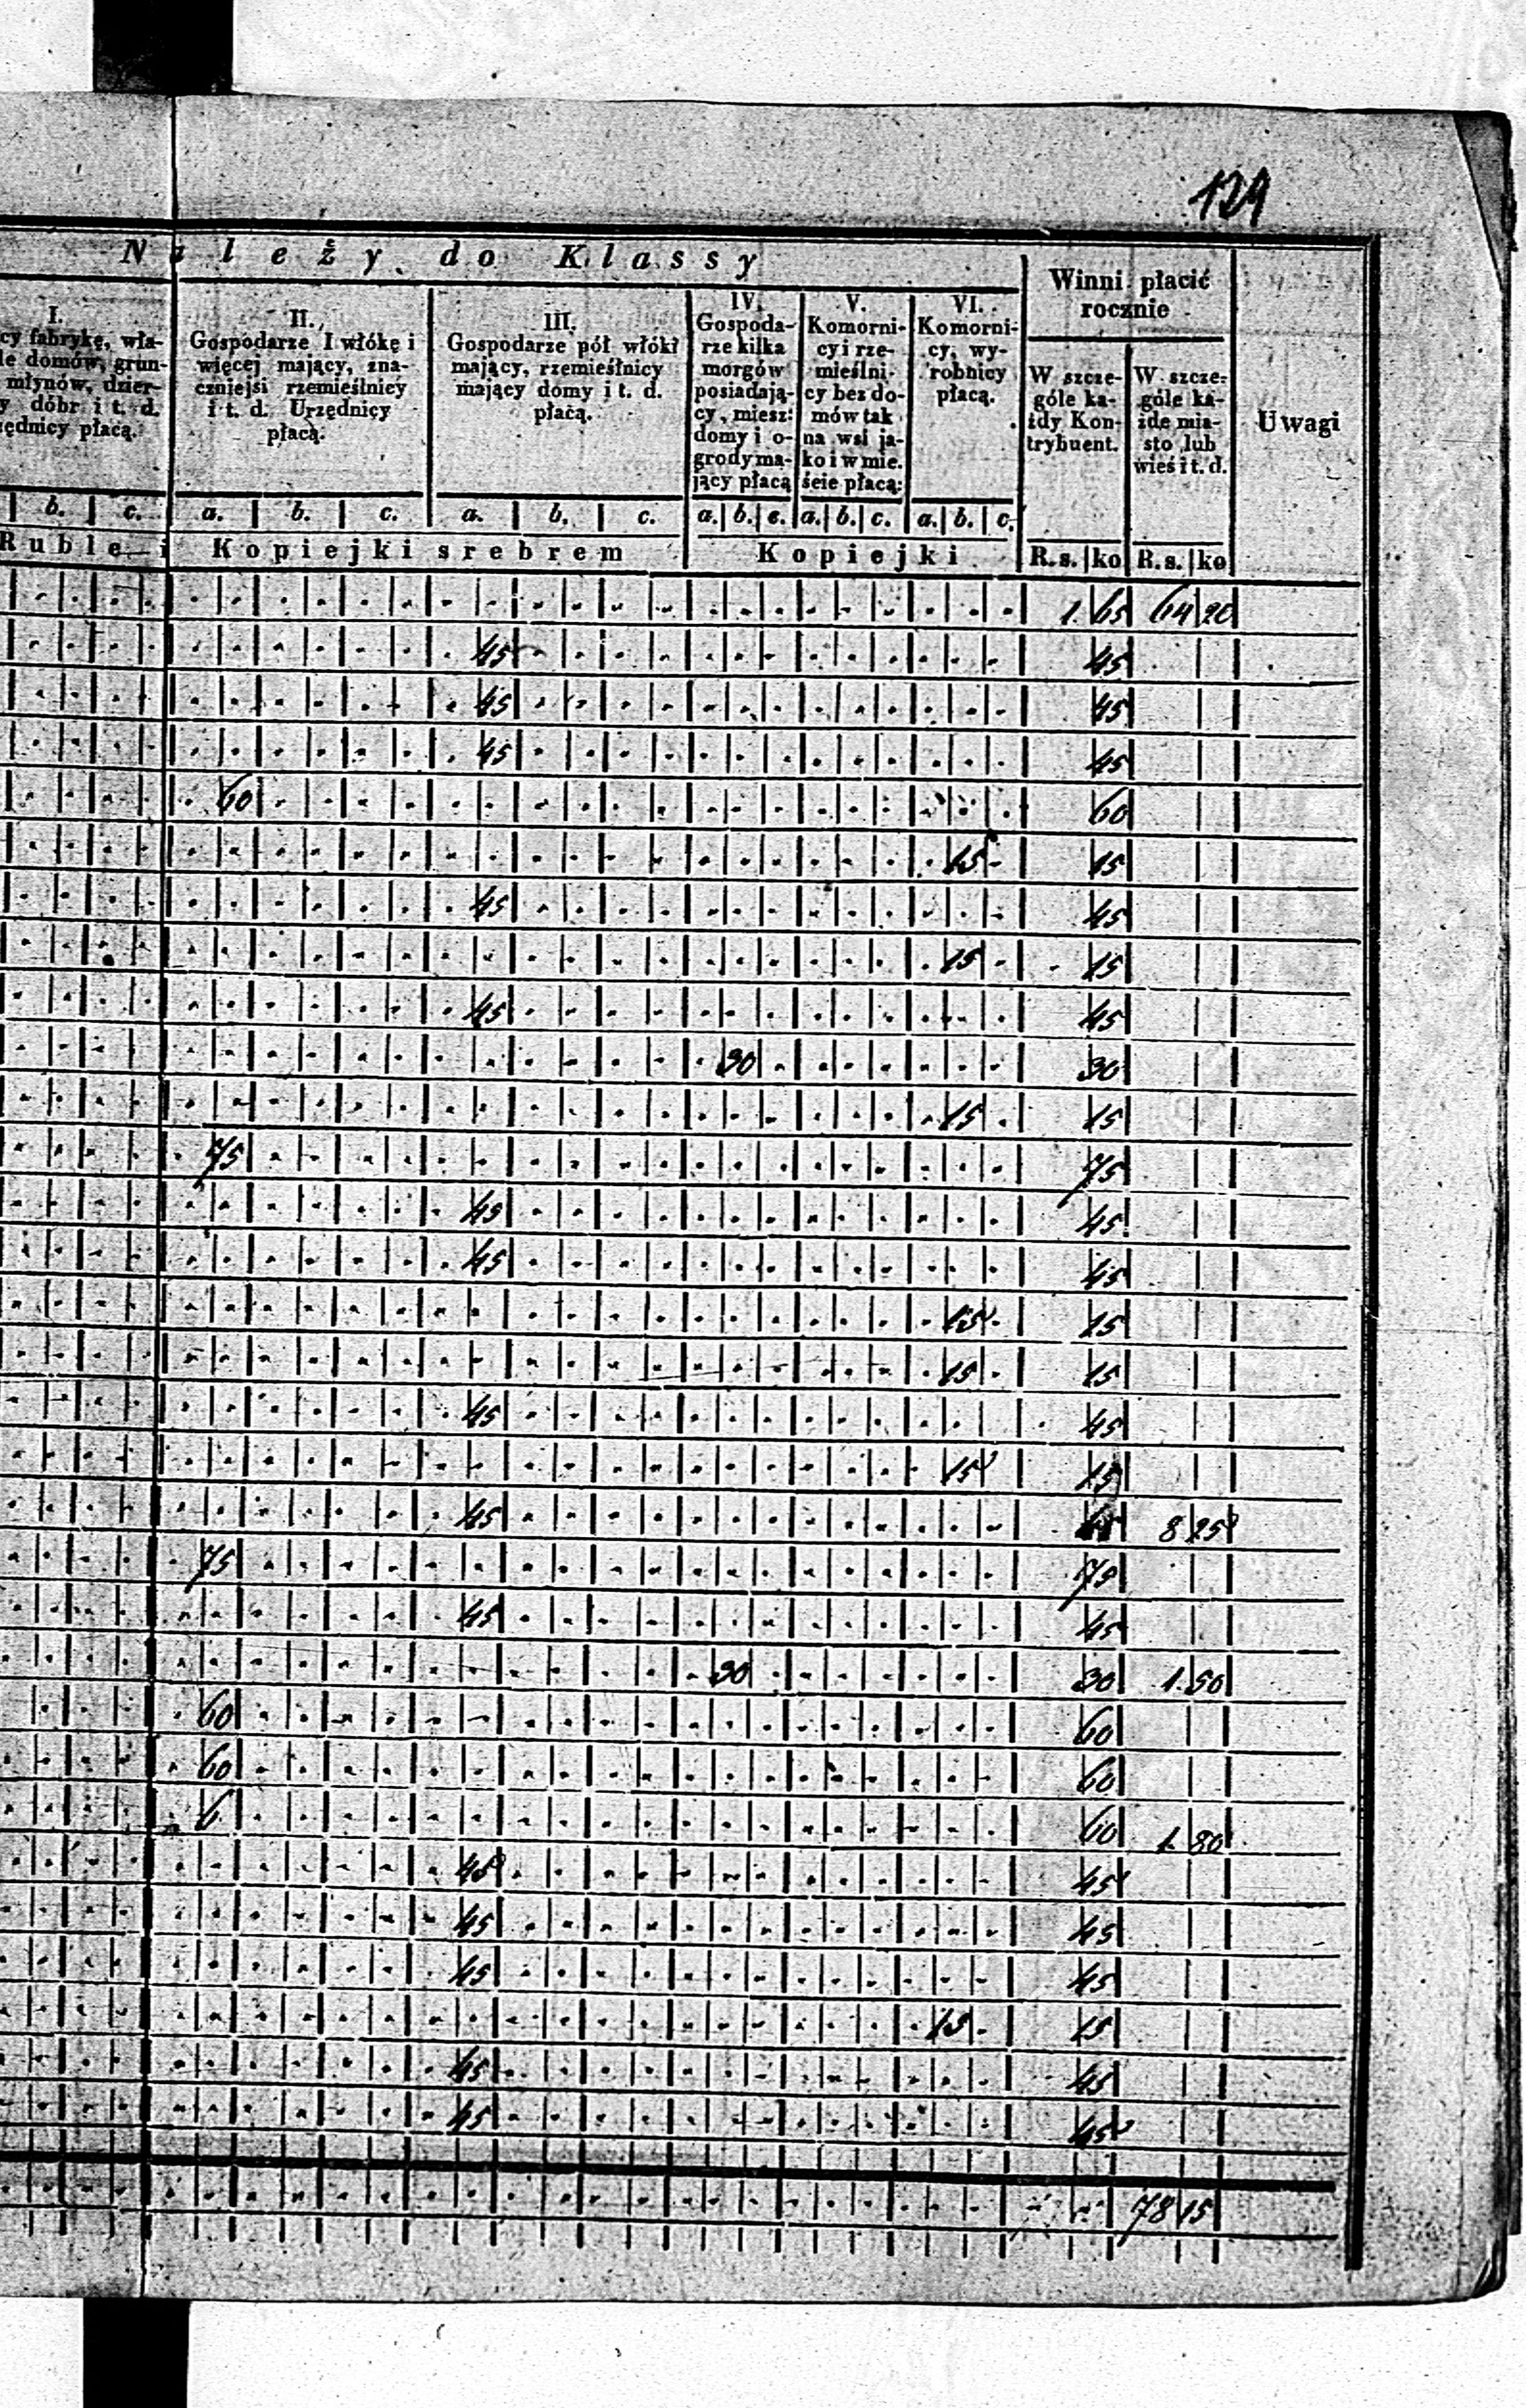 129
Należy do Klassy
Winni płacić
rocznie
Uwagi
I.
cy fabrykę, wła-
le domów, grun-
młynów, dzier-
y dóbr i t. d.
ędnicy płacą.
II.
Gospodarze I włókę i
więcej mający, zna-
czniejsi rzemieślnicy
i t. d. Urzędnicy
płacą.
III.
Gospodarze pół włóki
mający, rzemieślnicy
mający domy i t. d.
płacą.
IV.
Gospoda-
rze kilka
morgów
posiadają-
cy, miesz:
domy i o-
grody ma-
jący płacą
V.
Komorni-
cy i rze-
mieślni-
cy bez do-
mów tak
na wsi ja-
ko i w mie.
ście płacą:
VI.
Komorni-
cy, wy-
robnicy
płacą.
W szcze-
góle ka-
żdy Kon-
trybuent.
W szcze-
góle ka-
żde mia-
sto lub
wieś i t. d.
b. c. a. b. c. a. b. c. a. b. c. a. b. c. a. b. c.
Ruble i Kopiejki srebrem Kopiejki R.s. ko R.s. ko
1 65 64 20
45 45
45 45
45 45
60 60
15 15
45 45
15 15
45 45
30 30
15 15
75 75
45 45
45 45
15 15
15 15
45 45
15 15
45 45 8 25
75 75
45 45
30 30 1 50
60 60
60 60
6 60 1 80
45 45
45 45
45 45
15 15
45 45
45 45
78 15